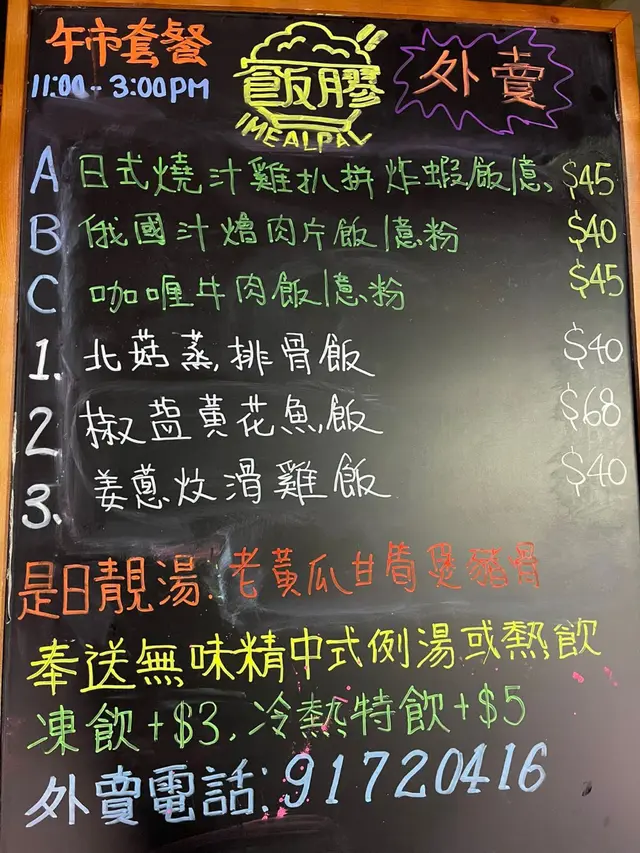 午市套餐
11:00 - 3:00PM
飯膠
IMEALPAL
外賣
A 日式燒汁雞扒拼炸蝦飯/意、 $45
B 俄國汁燴肉片飯/意粉 $40
C 咖喱牛肉飯/意粉 $45
1. 北菇蒸排骨飯 $40
2 椒盐黃花魚飯 $68
3. 姜蔥炆滑雞飯 $40
是日靚湯: 老黃瓜甘筍煲豬骨
奉送無味精中式例湯或熱飲
凍飲+$3, 冷熱特飲+$5
外賣電話: 91720416